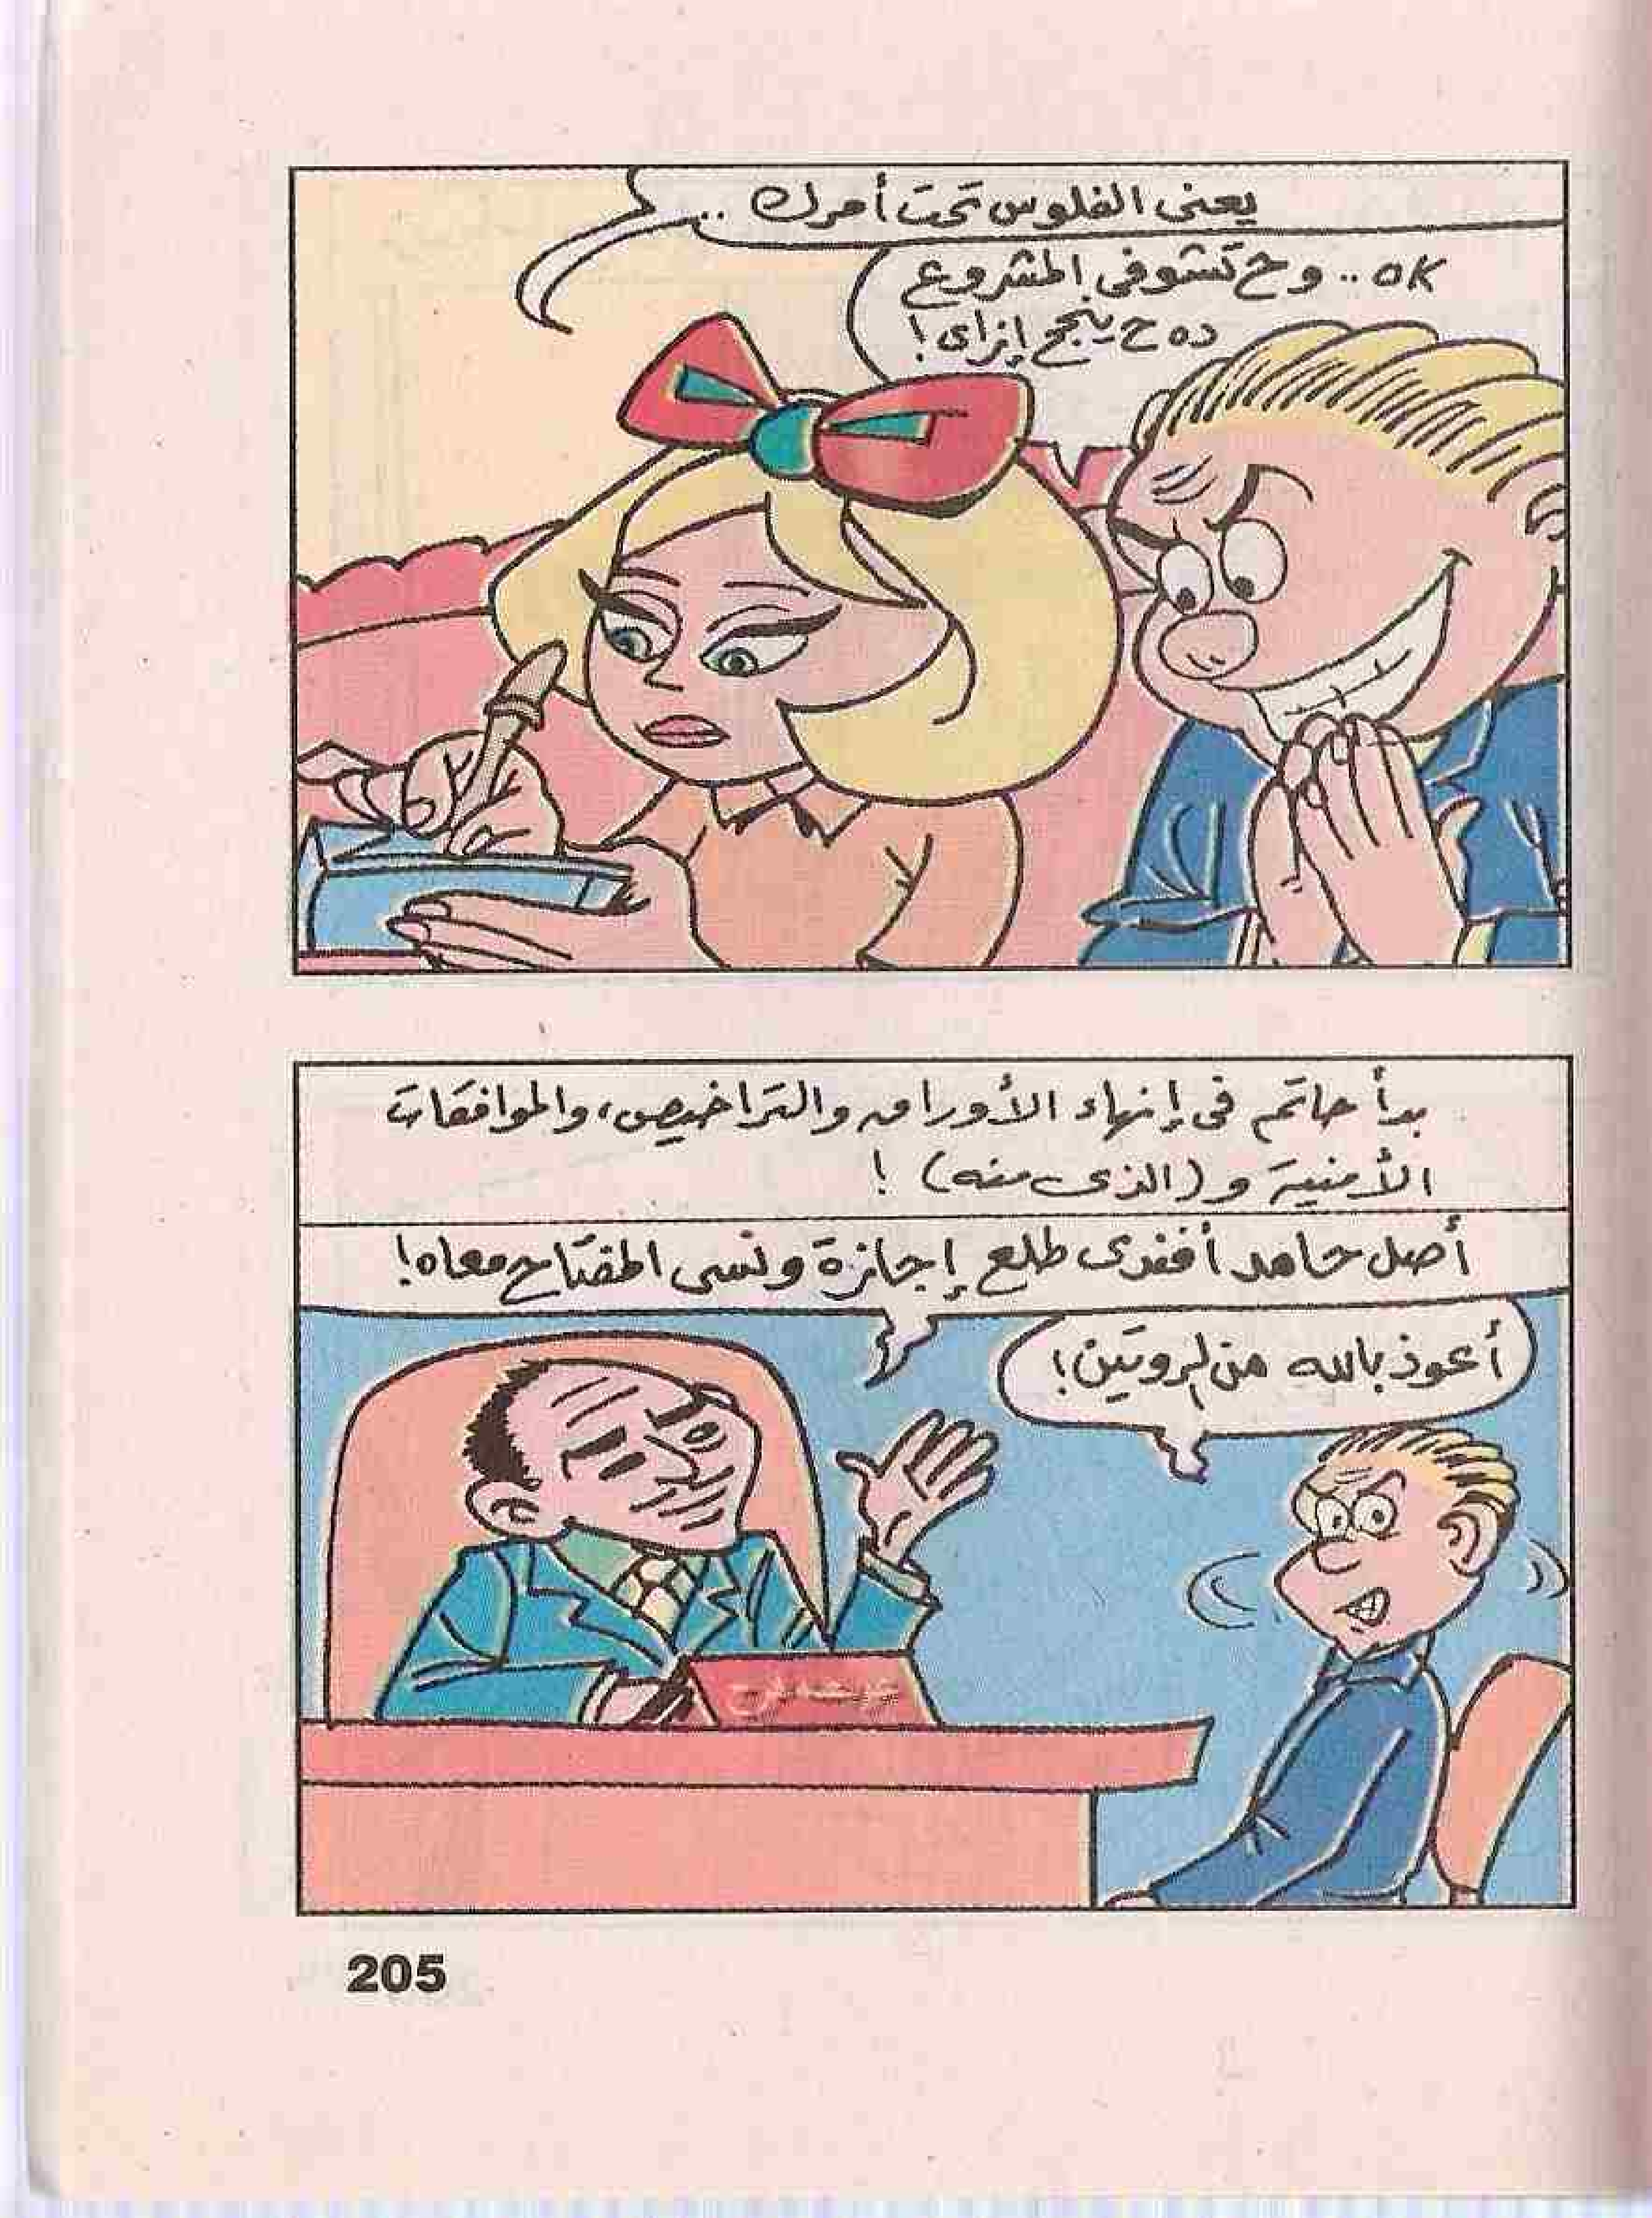 يعنى الفلوس تحت أمرك ..
OK .. وح تشوفى المشروع
ده ح ينجح إزاى !
بدأ حاتم فى إنهاء الأوراق والتراخيص، والموافقات
الأمنية و (الذى منه) !
أصل حامد أفندى طلع إجازة ونسى المفتاح معاه !
أعوذ بالله من الروتين !
205